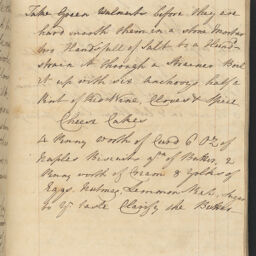 Take Green walnuts before they are
hard mash them in a stone Mortar
two Handsfull of Salt to a Hundd
strain it through a Strainer Boil
it up with six anchovys half a
Pint of Red Wine, Cloves & Spice
Cheese Cakes
a Penny worth of Curd 6 Oz of
Naples Biscuits of Butter, 2
Penny worth of Cream 8 Yolks of
Eggs. Nutmeg, Lemmon Peel, Sugar
to yr taste Clarify the Butter